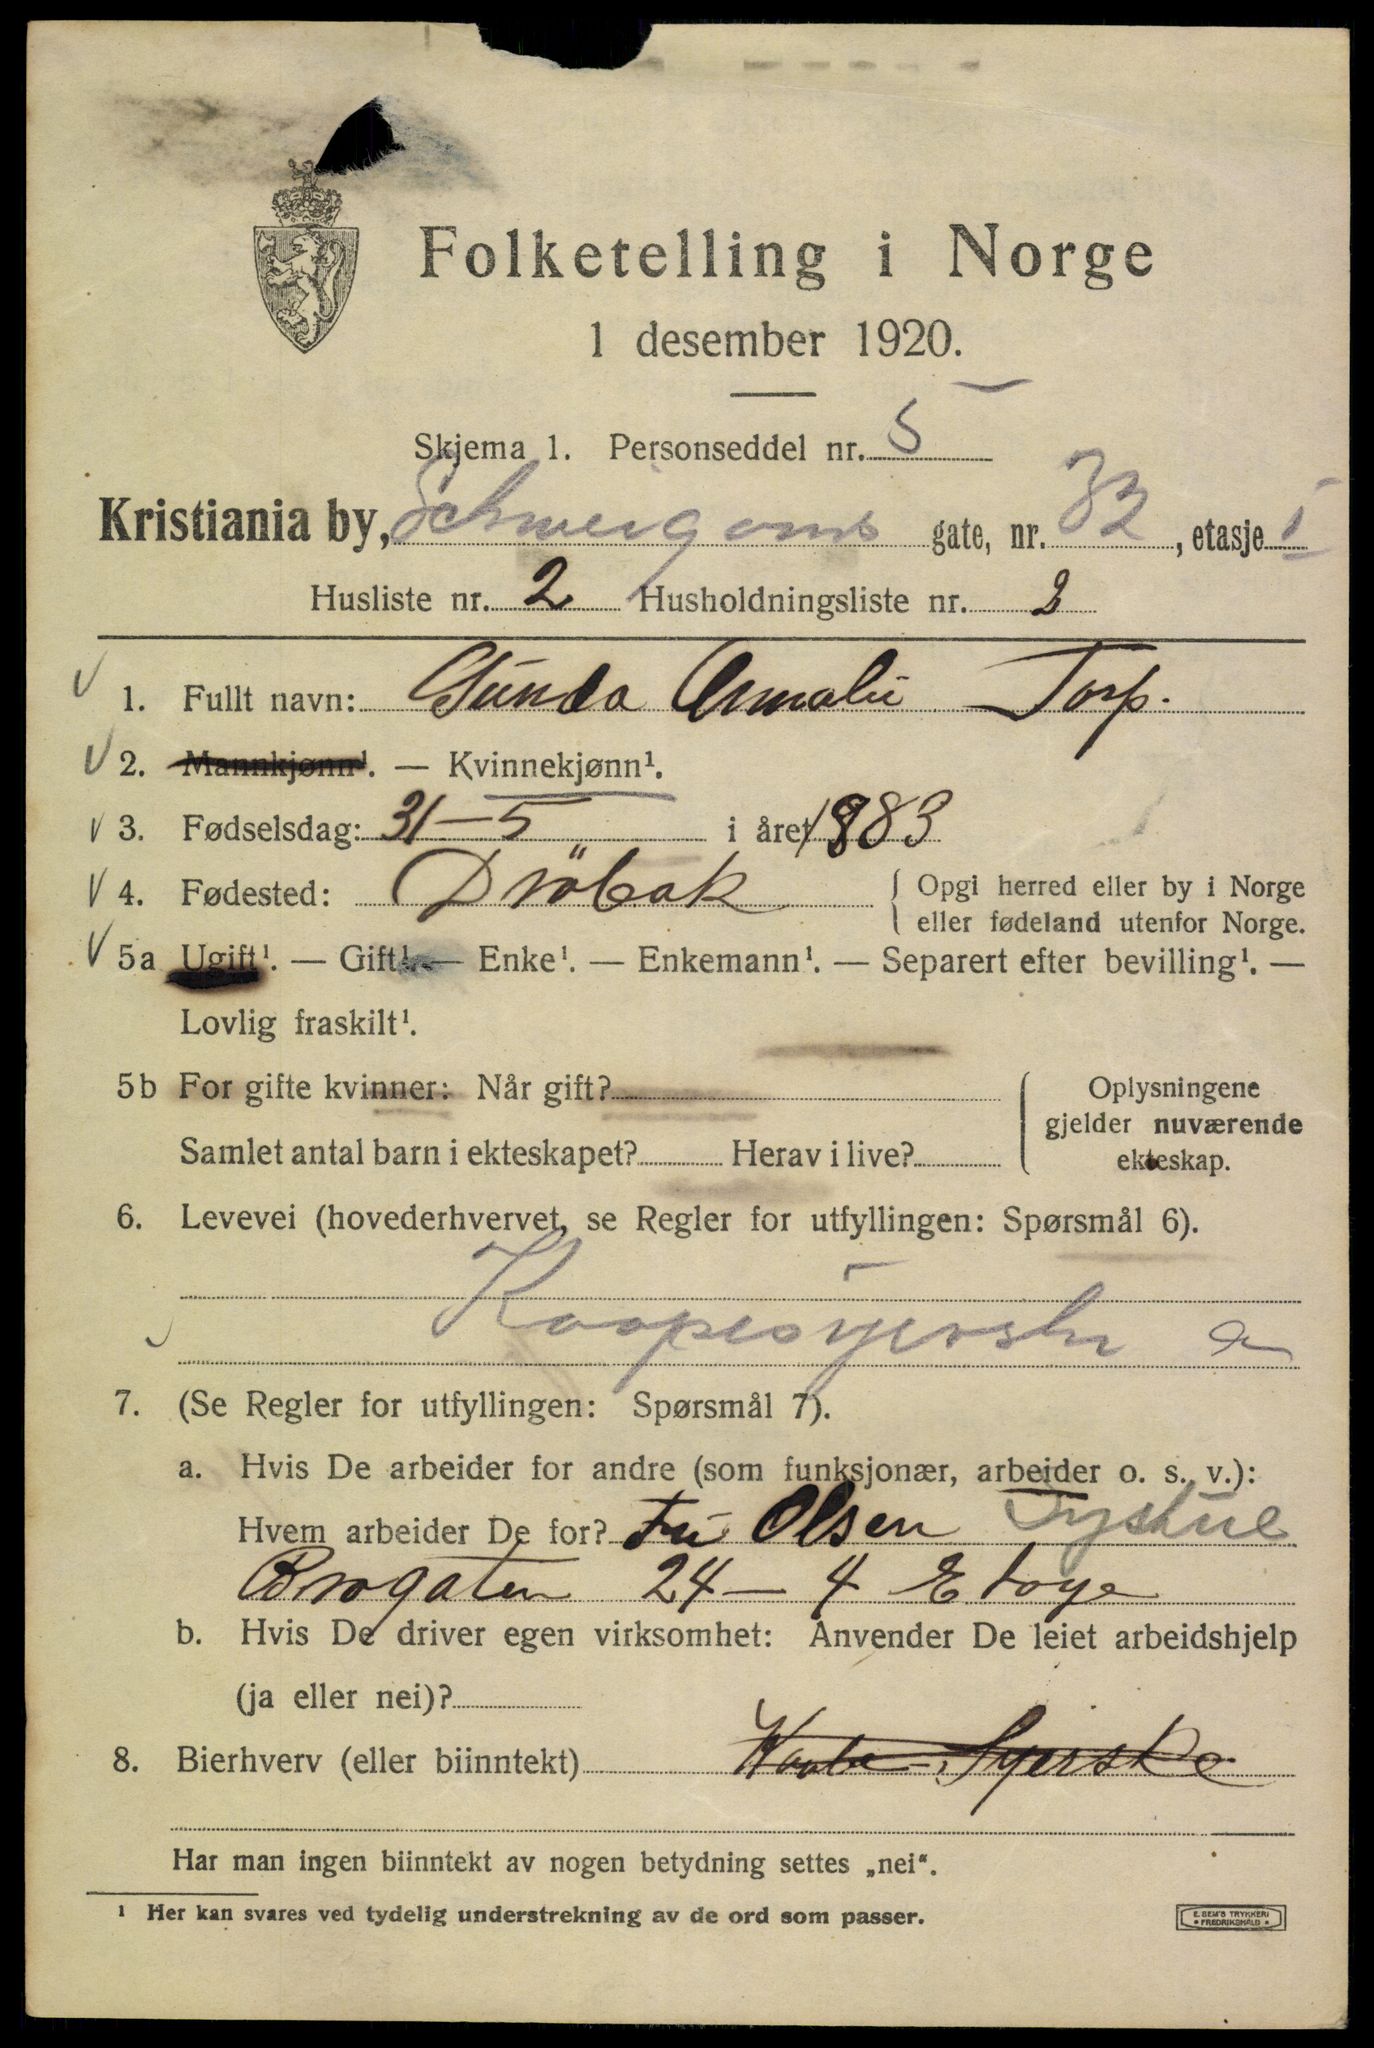 Folketelling i Norge
1 desember 1920.
Skjema 1. Personseddel nr. 5
Kristiania by, Schweigaards gate, nr. 32, etasje I
Husliste nr. 2 Husholdningsliste nr. 2
1. Fullt navn: Gunda Amalie Torp.
2. Mannkjønn¹. — Kvinnekjønn¹.
3. Fødselsdag: 31-5 i året 1883
4. Fødested: Dröbak { Opgi herred eller by i Norge
eller fødeland utenfor Norge.
5a Ugift¹. — Gift¹. — Enke¹. — Enkemann¹. — Separert efter bevilling¹. —
Lovlig fraskilt¹.
5b For gifte kvinner: Når gift?
Samlet antal barn i ekteskapet? Herav i live?
{ Oplysningene
gjelder nuværende
ekteskap.
6. Levevei (hovederhvervet, se Regler for utfyllingen: Spørsmål 6).
Kaapesyerske
7. (Se Regler for utfyllingen: Spørsmål 7).
a. Hvis De arbeider for andre (som funksjonær, arbeider o. s. v.):
Hvem arbeider De for? Olsen
Brogaten 24 - 4 Etage
b. Hvis De driver egen virksomhet: Anvender De leiet arbeidshjelp
(ja eller nei)?
8. Bierhverv (eller biinntekt) Kaabe-Syerske
Har man ingen biinntekt av nogen betydning settes „nei“.
¹ Her kan svares ved tydelig understrekning av de ord som passer.
E. SEM'S TRYKKERI
FREDRIKSHALD